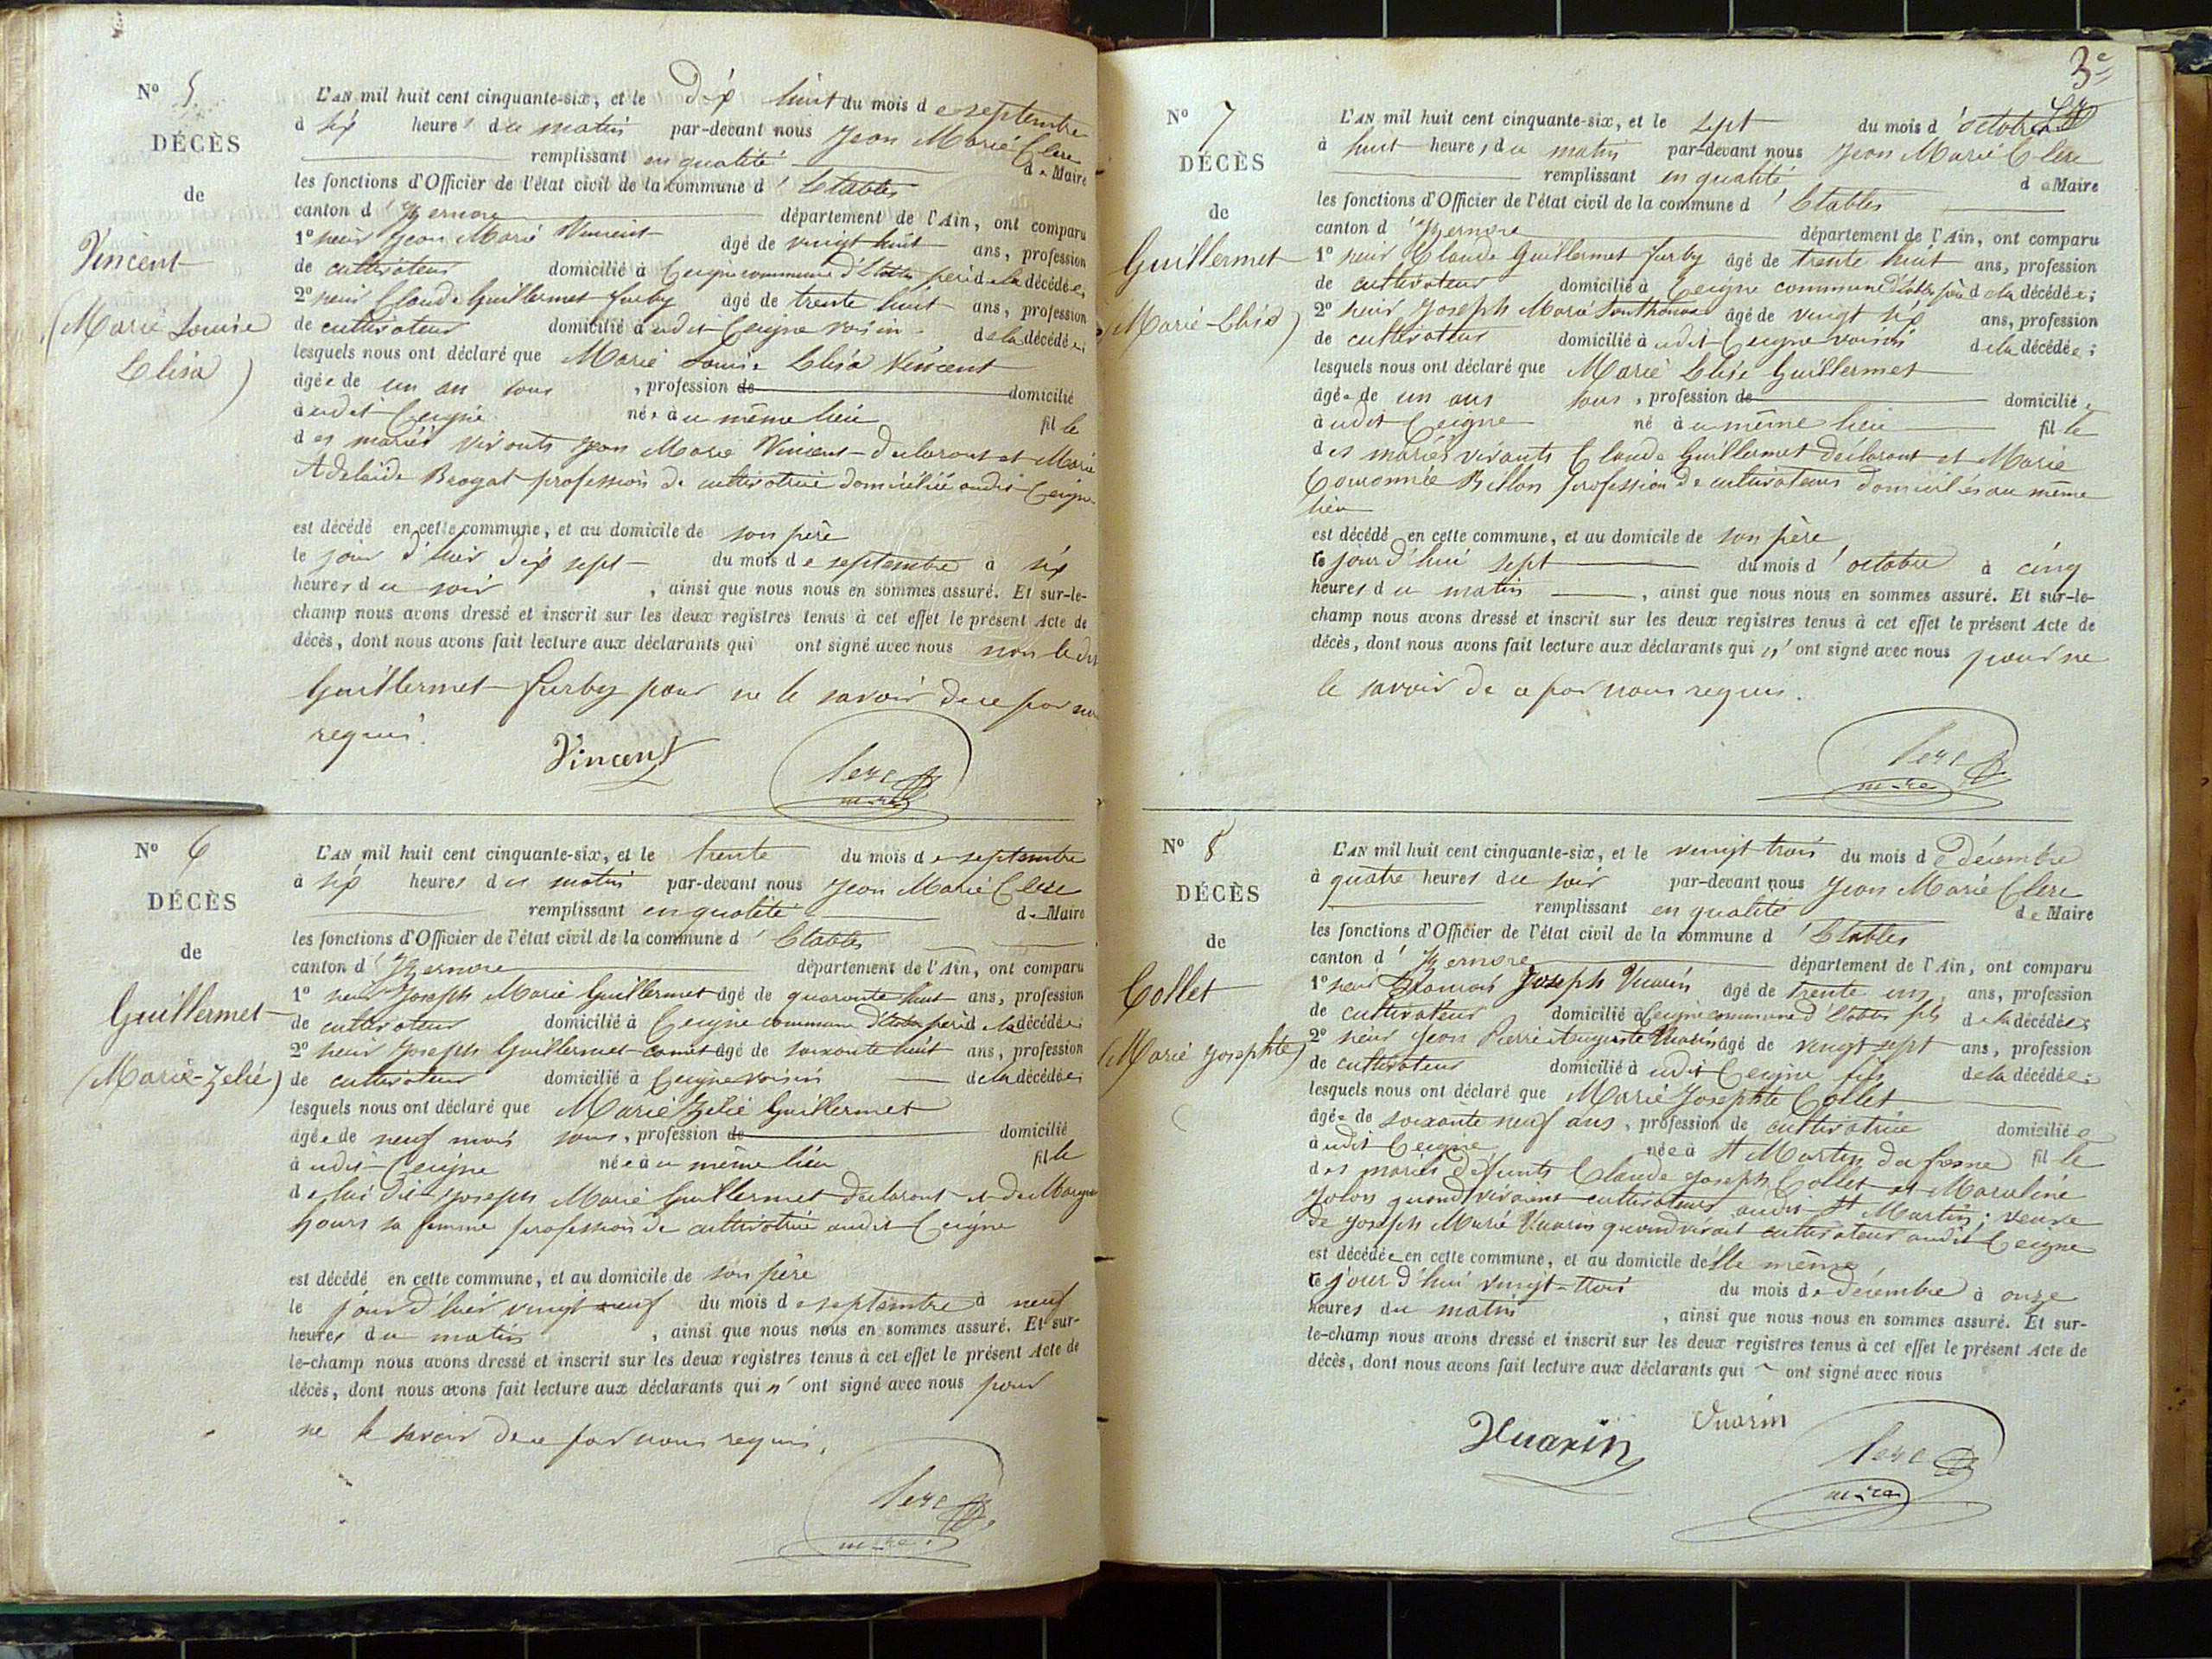 N° 5
DÉCÈS
de
Vincent
(Marie Louise
Elisa)
L'AN mil huit cent cinquante-six, et le dix huit du mois de septembre
à six heures du matin par-devant nous Jean Marie Clerc
remplissant en qualité de Maire
les fonctions d'Officier de l'état civil de la commune d'Etables
canton d'Izernore département de l'Ain, ont comparu
1° sieur Jean Marie Vincent âgé de vingt huit ans, profession
de cultivateur domicilié à Ceigne commune d'Etables père de la décédée;
2° sieur Claude Guillermet furby âgé de trente huit ans, profession
de cultivateur domicilié à udit Ceigne voisin de la décédée;
lesquels nous ont déclaré que Marie Louise Elisa Vincent
âgée de un an sans, profession de domicilié
à udit Ceigne née à u même lieu fille
des mariés vivants Jean Marie Vincent declarant et Marie
Adelaïde Beogat profession de cultivatrice domiciliée audit Ceigne
est décédé en cette commune, et au domicile de son père
le jour d'hier dix sept du mois de septembre à six
heures du soir, ainsi que nous nous en sommes assuré. Et sur-le-
champ nous avons dressé et inscrit sur les deux registres tenus à cet effet le présent Acte de
décès, dont nous avons fait lecture aux déclarants qui ont signé avec nous non le dit
Guillermet furby pour ne le savoir de ce par nous
requis.
Vincent Clerc
maire
N° 6
DÉCÈS
de
Guillermet
(Marie-Zelie)
L'AN mil huit cent cinquante-six, et le trente du mois de septembre
à six heures du matin par-devant nous Jean Marie Clerc
remplissant en qualité de Maire
les fonctions d'Officier de l'état civil de la commune d'Etables
canton d'Izernore département de l'Ain, ont comparu
1° sieur Joseph Marie Guillermet âgé de quarante huit ans, profession
de cultivateur domicilié à Ceigne commune d'Etables père de la décédée;
2° sieur Joseph Guillermet comet âgé de soixante huit ans, profession
de cultivateur domicilié à Ceigne voisin de la décédée;
lesquels nous ont déclaré que Marie Zélie Guillermet
âgée de neuf mois sans, profession de domicilié
à udit Ceigne née à u même lieu fille
de lui dit Joseph Marie Guillermet declarant et de
sa femme profession de cultivatrice audit Ceigne
est décédé en cette commune, et au domicile de son père
le jour d'hier vingt neuf du mois de septembre à neuf
heures du matin, ainsi que nous nous en sommes assuré. Et sur-
le-champ nous avons dressé et inscrit sur les deux registres tenus à cet effet le présent Acte de
décès, dont nous avons fait lecture aux déclarants qui n'ont signé avec nous pour
ne le savoir de ce par nous requis.
Clerc
maire
3e
N° 7
DÉCÈS
de
Guillermet
(Marie-Elisa)
L'AN mil huit cent cinquante-six, et le sept du mois d'octobre
à huit heures du matin par-devant nous Jean Marie Clerc
remplissant en qualité de Maire
les fonctions d'Officier de l'état civil de la commune d'Etables
canton d'Izernore département de l'Ain, ont comparu
1° sieur Claude Guillermet furby âgé de trente huit ans, profession
de cultivateur domicilié à Ceigne commune d'Etables père de la décédée;
2° sieur Joseph Marie âgé de vingt six ans, profession
de cultivateur domicilié à udit Ceigne voisin de la décédée;
lesquels nous ont déclaré que Marie Elise Guillermet
âgée de un ans sans, profession de domicilié
à udit Ceigne né à u même lieu fille
des mariés vivants Claude Guillermet déclarant et Marie
Couronnée Billon profession de cultivateurs domiciliés au même
lieu
est décédé en cette commune, et au domicile de son père
ce jour d'hui sept du mois d'octobre à cinq
heures du matin, ainsi que nous nous en sommes assuré. Et sur-le-
champ nous avons dressé et inscrit sur les deux registres tenus à cet effet le présent Acte de
décès, dont nous avons fait lecture aux déclarants qui n'ont signé avec nous pour ne
le savoir de ce par nous requis.
Clerc
maire
N° 8
DÉCÈS
de
Collet
(Marie Josephte)
L'AN mil huit cent cinquante-six, et le vingt trois du mois de décembre
à quatre heures du soir par-devant nous Jean Marie Clerc
remplissant en qualité de Maire
les fonctions d'Officier de l'état civil de la commune d'Etables
canton d'Izernore département de l'Ain, ont comparu
1° sieur François Joseph Vuarin âgé de trente un ans, profession
de cultivateur domicilié à Ceigne commune d'Etables fils de la décédée;
2° sieur Jean Pierre Auguste Vuarin âgé de vingt sept ans, profession
de cultivateur domicilié à udit Ceigne fils de la décédée;
lesquels nous ont déclaré que Marie Josephte Collet
âgée de soixante neuf ans, profession de cultivatrice domiciliée
à udit Ceigne née à St Martin du fresne fille
des mariés défunts Claude Joseph Collet et
Jolon quand vivaient cultivateurs audit St Martin; veuve
de Joseph Marie Vuarin quand vivait cultivateur audit Ceigne
est décédée en cette commune, et au domicile d'elle même
ce jour d'hui vingt-trois du mois de décembre à onze
heures du matin, ainsi que nous nous en sommes assuré. Et sur-
le-champ nous avons dressé et inscrit sur les deux registres tenus à cet effet le présent Acte de
décès, dont nous avons fait lecture aux déclarants qui ont signé avec nous
Vuarin Vuarin Clerc
maire